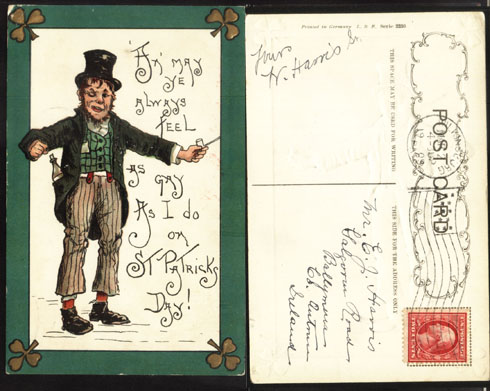 An' may
ye
always
feel
as
gay
As I do
on
St Patricks
Day!
Printed in Germany
Your
H. Harris
THIS SPACE MAY BE USED FOR WRITING
POST CARD
THIS SIDE FOR THE ADDRESS ONLY
Mrs. E. J. Harris
Galgorm Road
Ballymena
Co. Antrim
Ireland